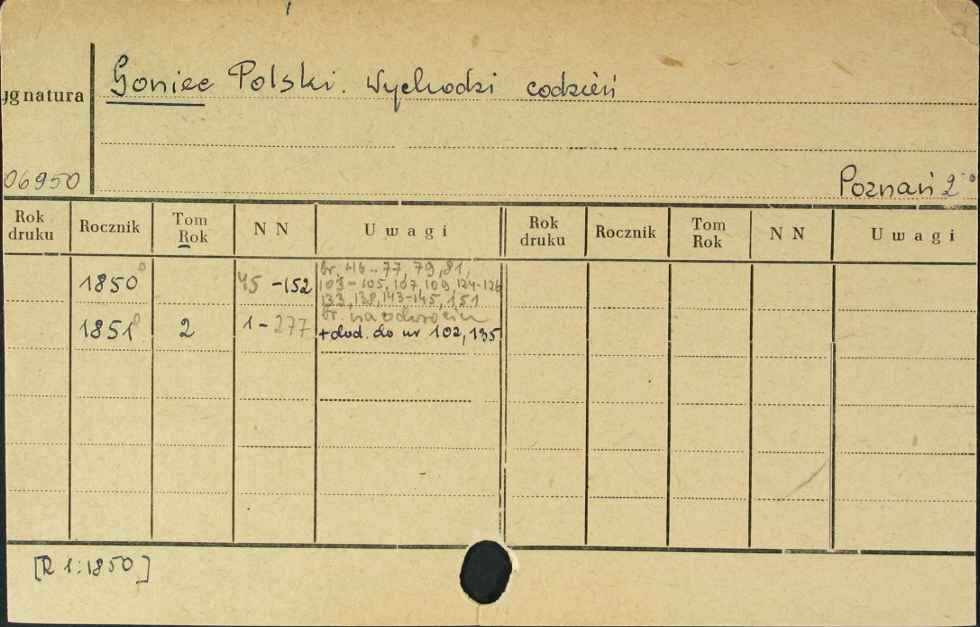 Goniec Polski. Wychodzi codzień
ygnatura
06950 Poznań 2°
Rok druku Rocznik Tom Rok N N Uwagi Rok druku Rocznik Tom Rok N N Uwagi
1850° 45-152 br. 46-77, 79, 81,
103-105, 107, 109, 124-126
133, 138, 143-145, 151
br. na odwrocie
1851° 2 1-277 +dod. do nr 102, 135
[R 1:1850]